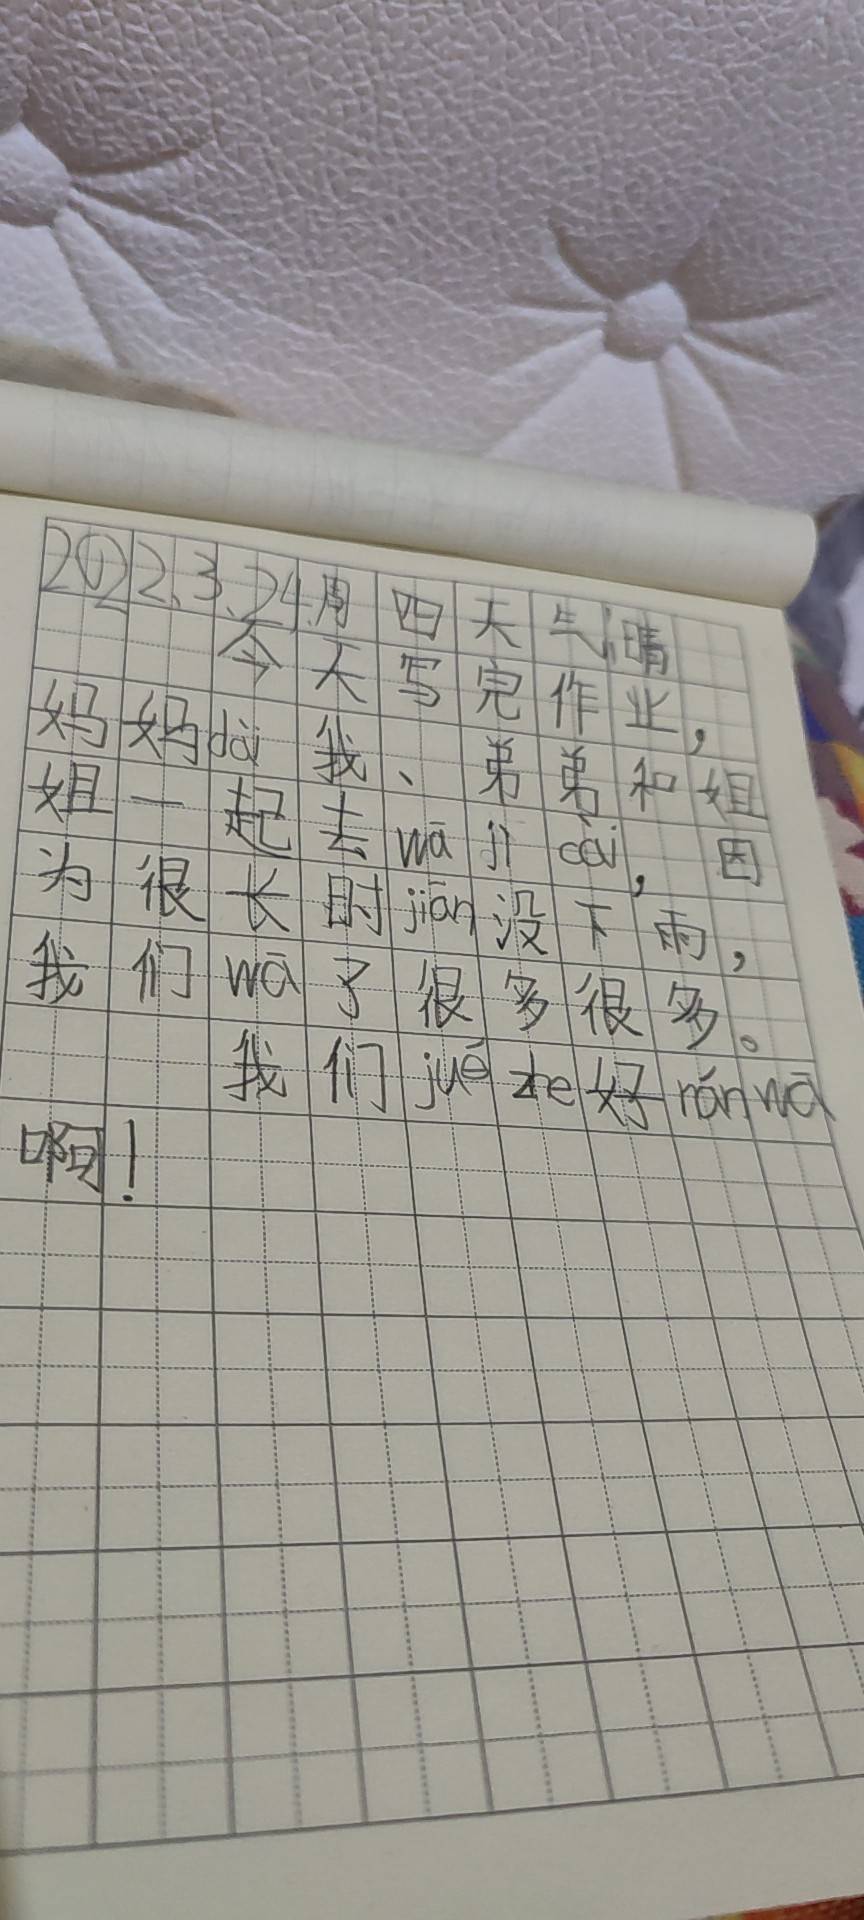 2022.3.24周四天气晴
今天写完作业，
妈妈dài我、弟弟和姐
姐一起去wā jì cài，因
为很长时jiān没下雨，
我们wā了很多很多。
我们jué zhe好nán wā
啊！